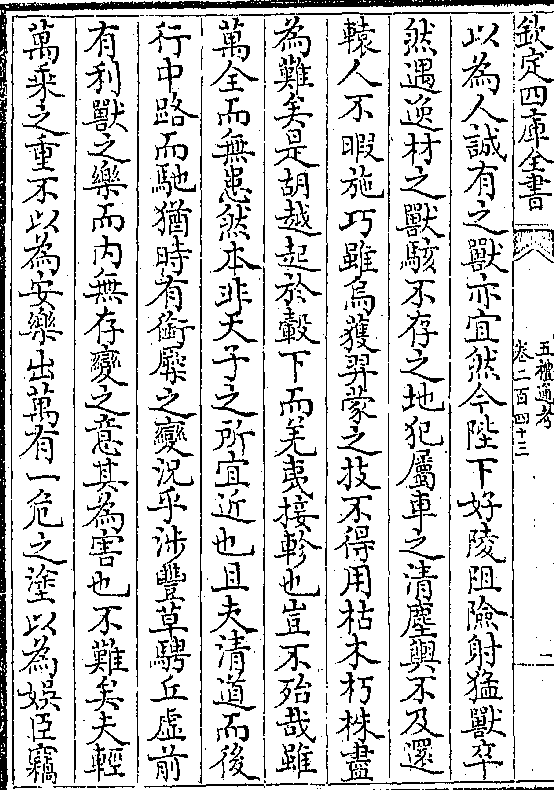 欽定四庫全書
五禮通考
卷二百四十三
一
以為人誠有之獸亦宜然今陛下好陵阻險射猛獸卒
然遇逸材之獸駭不存之地犯屬車之清塵輿不及還
轅人不暇施巧雖烏獲羿蒙之技不得用枯木朽株盡
為難矣是胡越起於轂下而羌夷接軫也豈不殆哉雖
萬全而無患然本非天子之所宜近也且夫清道而後
行中路而馳猶時有銜橜之變況乎涉豐草騁丘虛前
有利獸之樂而内無存變之意其為害也不難矣夫輕
萬乘之重不以為安樂出萬有一危之塗以為娛臣竊